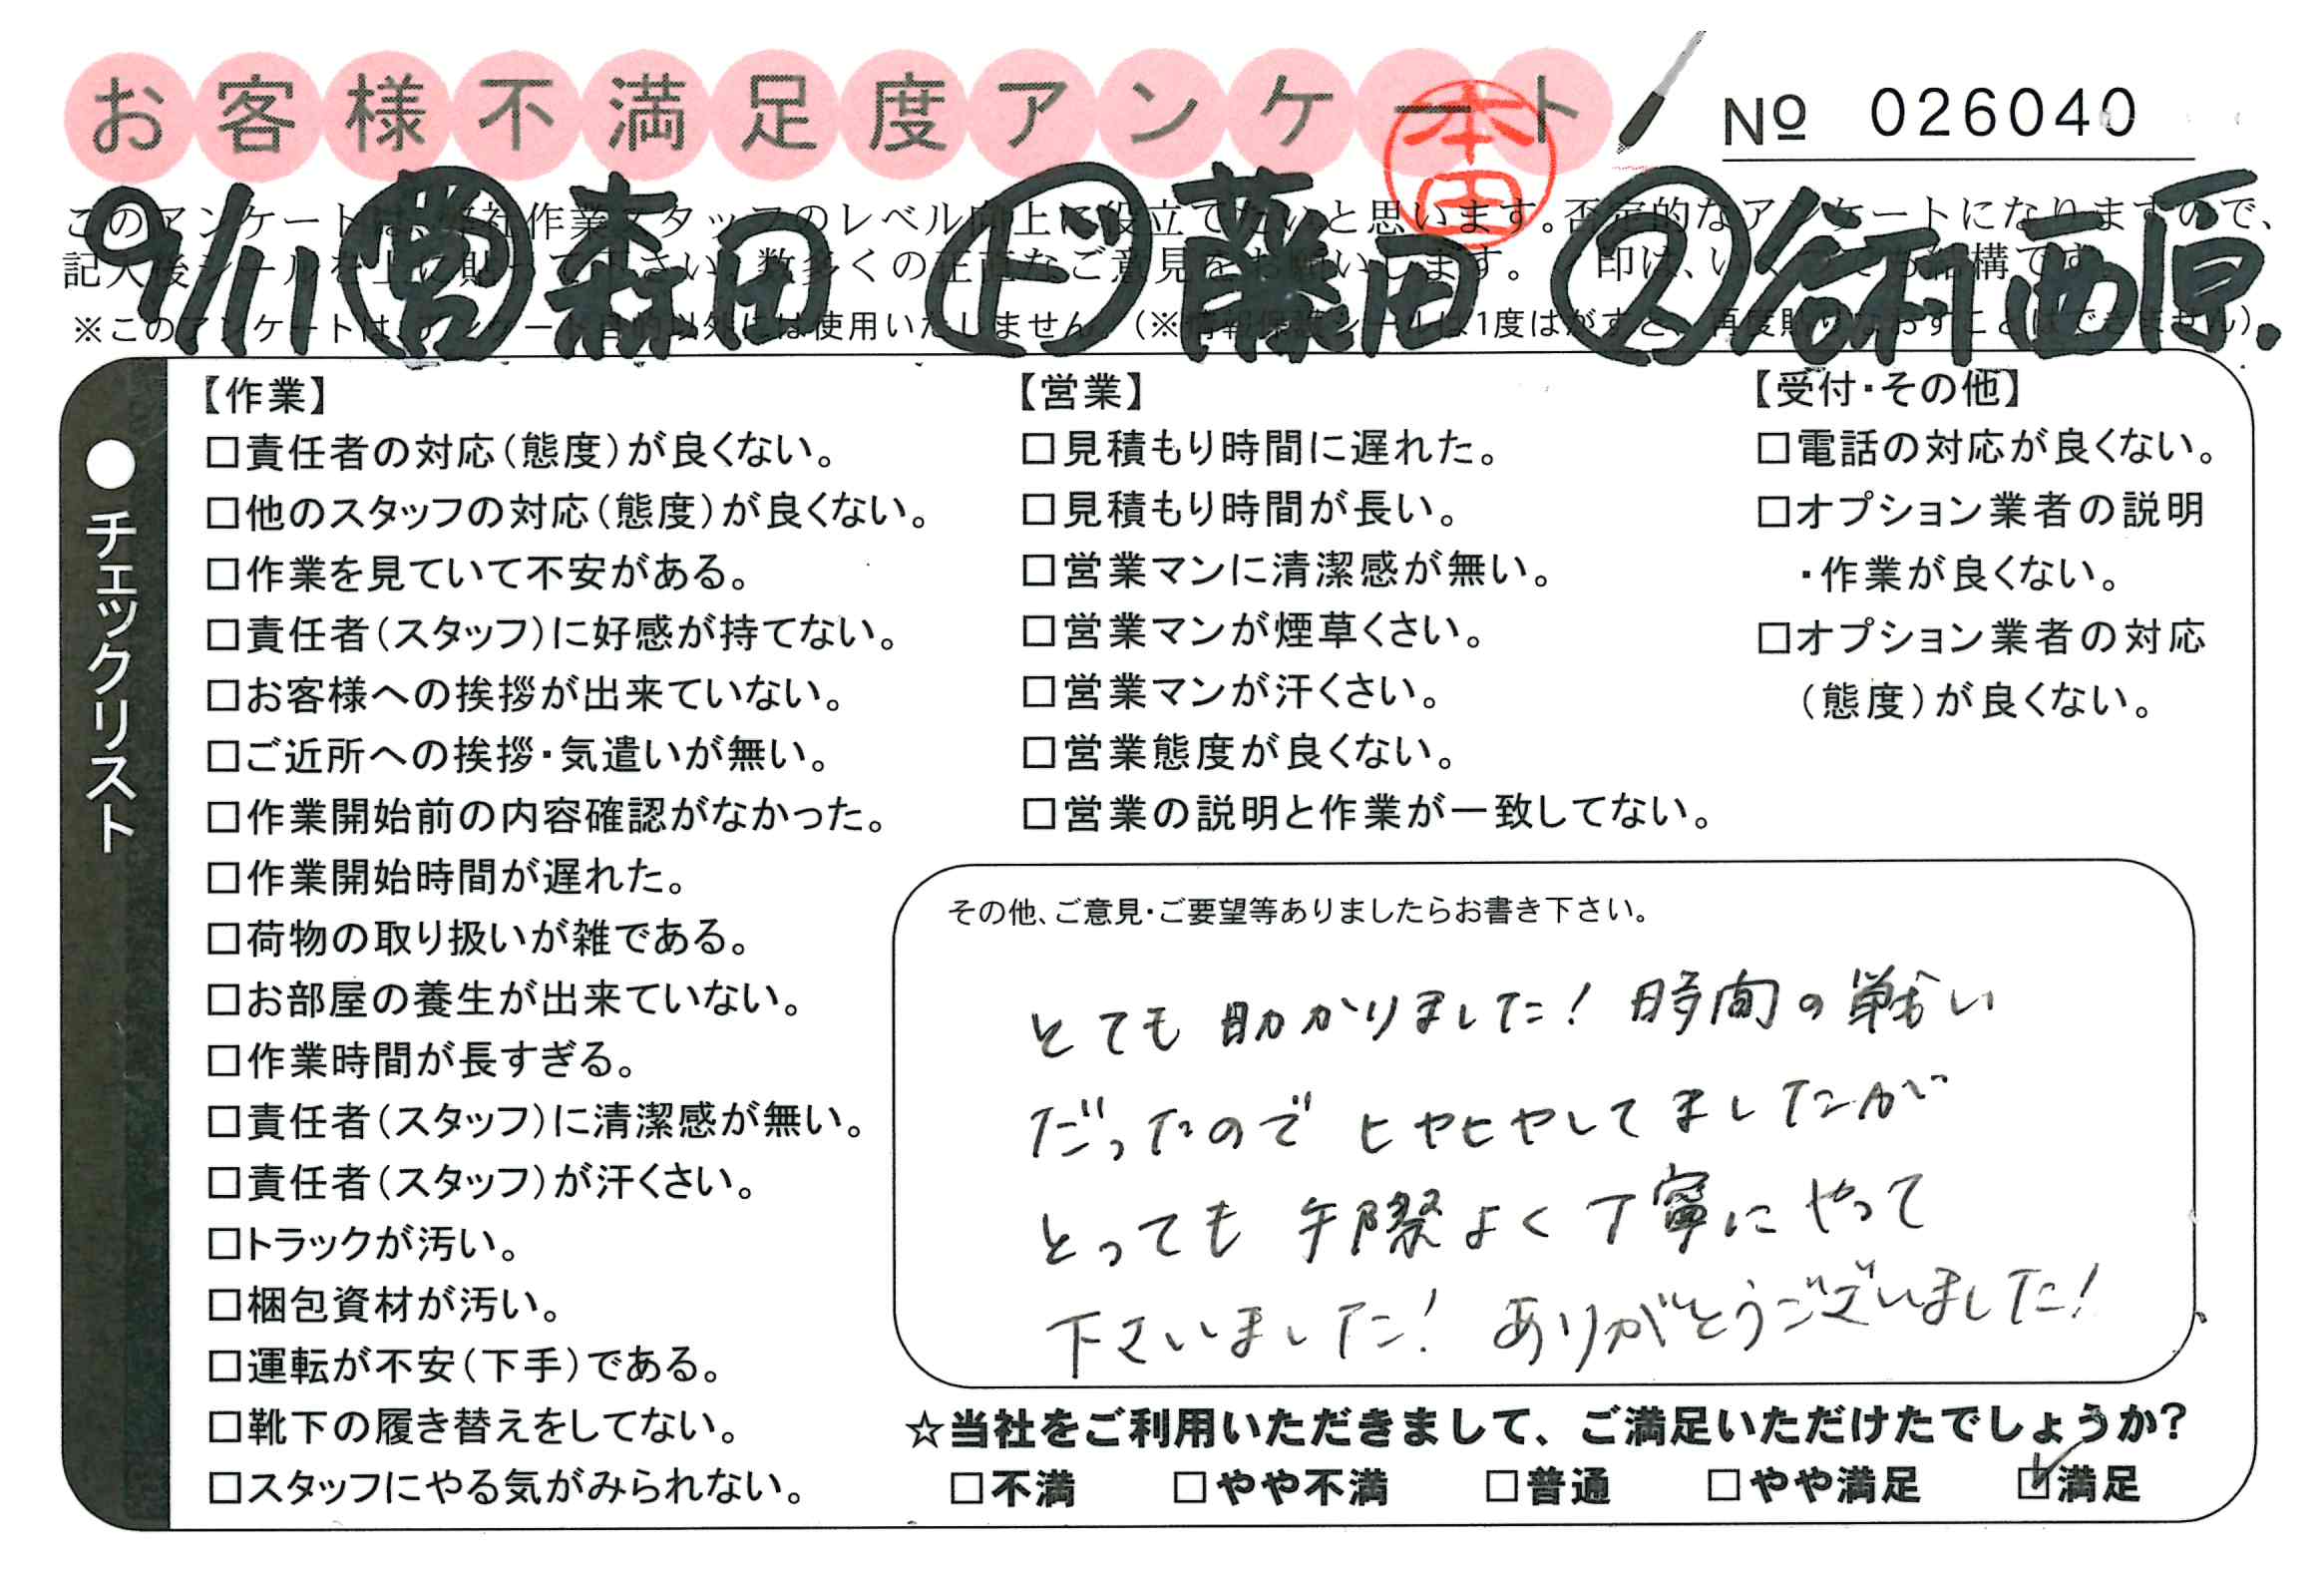 お客様不満足度アンケート
本田
№ 026040
9/11 営 森田 ド 藤田 ス 谷村 西原.
このアンケートは、 社作業スタッフのレベル向上に役立てたいと思います。否定的なアンケートになりますので、
記入後シールを上に貼って下さい。数多くの正直なご意見をお願いします。 印は、いくつでも結構です。
※このアンケートは、アンケート目的以外には使用いたしません。(※情報保護シールは1度はがすと、再度貼りなおすことはできません)
●チェックリスト
【作業】
□責任者の対応(態度)が良くない。
□他のスタッフの対応(態度)が良くない。
□作業を見ていて不安がある。
□責任者(スタッフ)に好感が持てない。
□お客様への挨拶が出来ていない。
□ご近所への挨拶・気遣いが無い。
□作業開始前の内容確認がなかった。
□作業開始時間が遅れた。
□荷物の取り扱いが雑である。
□お部屋の養生が出来ていない。
□作業時間が長すぎる。
□責任者(スタッフ)に清潔感が無い。
□責任者(スタッフ)が汗くさい。
□トラックが汚い。
□梱包資材が汚い。
□運転が不安(下手)である。
□靴下の履き替えをしてない。
□スタッフにやる気がみられない。
【営業】
□見積もり時間に遅れた。
□見積もり時間が長い。
□営業マンに清潔感が無い。
□営業マンが煙草くさい。
□営業マンが汗くさい。
□営業態度が良くない。
□営業の説明と作業が一致してない。
【受付・その他】
□電話の対応が良くない。
□オプション業者の説明
・作業が良くない。
□オプション業者の対応
(態度)が良くない。
その他、ご意見・ご要望等ありましたらお書き下さい。
とても助かりました! 時間の戦い
だったのでヒヤヒヤしてましたが
とっても手際よく丁寧にやって
下さいました! ありがとうございました!
☆当社をご利用いただきまして、ご満足いただけたでしょうか?
□不満 □やや不満 □普通 □やや満足 ☑満足